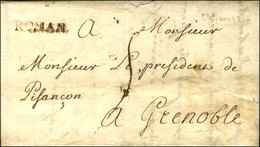 ROMAN
A Monsieur
Monsieur Le president de
Pisançon
A Grenoble